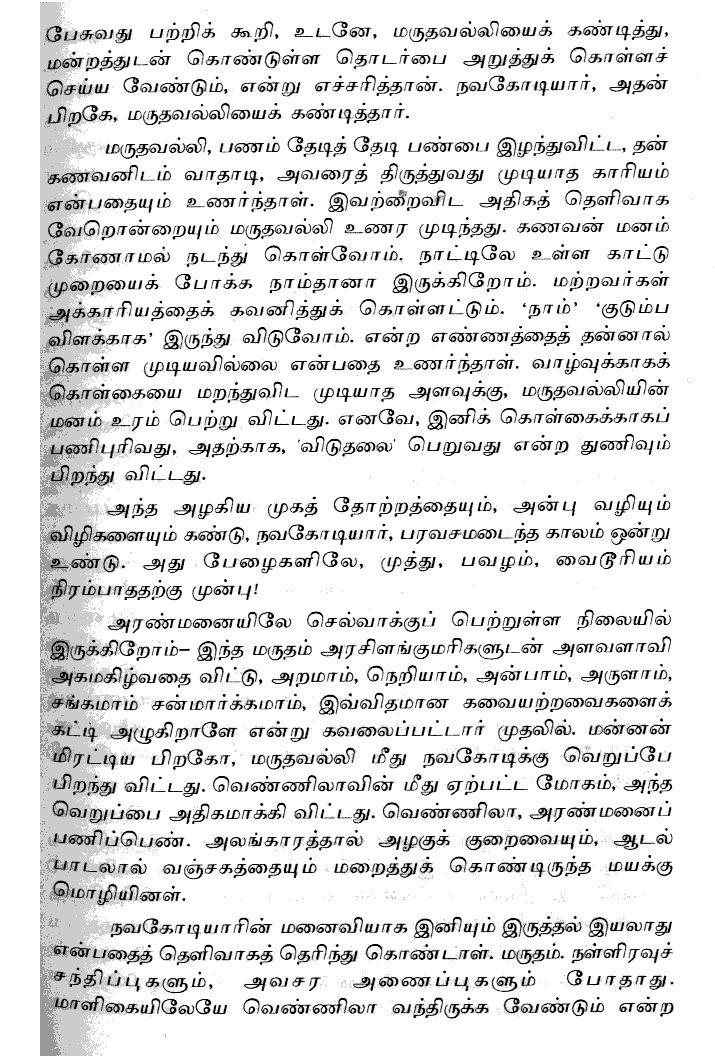 பேசுவது பற்றிக் கூறி, உடனே, மருதவல்லியைக் கண்டித்து,
மன்றத்துடன் கொண்டுள்ள தொடர்பை அறுத்துக் கொள்ளச்
செய்ய வேண்டும், என்று எச்சரித்தான். நவகோடியார், அதன்
பிறகே, மருதவல்லியைக் கண்டித்தார்.
மருதவல்லி, பணம் தேடித் தேடி பண்பை இழந்துவிட்ட, தன்
கணவனிடம் வாதாடி, அவரைத் திருத்துவது முடியாத காரியம்
என்பதையும் உணர்ந்தாள். இவற்றைவிட அதிகத் தெளிவாக
வேறொன்றையும் மருதவல்லி உணர முடிந்தது. கணவன் மனம்
கோணாமல் நடந்து கொள்வோம். நாட்டிலே உள்ள காட்டு
முறையைக் போக்க நாம்தானா இருக்கிறோம். மற்றவர்கள்
அக்காரியத்தைக் கவனித்துக் கொள்ளட்டும். ‘நாம்’ ‘குடும்ப
விளக்காக’ இருந்து விடுவோம். என்ற எண்ணத்தைத் தன்னால்
கொள்ள முடியவில்லை என்பதை உணர்ந்தாள். வாழ்வுக்காகக்
கொள்கையை மறந்துவிட முடியாத அளவுக்கு, மருதவல்லியின்
மனம் உரம் பெற்று விட்டது. எனவே, இனிக் கொள்கைக்காகப்
பணிபுரிவது, அதற்காக, 'விடுதலை' பெறுவது என்ற துணிவும்
பிறந்து விட்டது.
அந்த அழகிய முகத் தோற்றத்தையும், அன்பு வழியும்
விழிகளையும் கண்டு, நவகோடியார், பரவசமடைந்த காலம் ஒன்று
உண்டு. அது பேழைகளிலே, முத்து, பவழம், வைடூரியம்
நிரம்பாததற்கு முன்பு!
அரண்மனையிலே செல்வாக்குப் பெற்றுள்ள நிலையில்
இருக்கிறோம்– இந்த மருதம் அரசிளங்குமரிகளுடன் அளவளாவி
அகமகிழ்வதை விட்டு, அறமாம், நெறியாம், அன்பாம், அருளாம்,
சங்கமாம் சன்மார்க்கமாம், இவ்விதமான சுவையற்றவைகளைக்
கட்டி அழுகிறாளே என்று கவலைப்பட்டார் முதலில். மன்னன்
மிரட்டிய பிறகோ, மருதவல்லி மீது நவகோடிக்கு வெறுப்பே
பிறந்து விட்டது. வெண்ணிலாவின் மீது ஏற்பட்ட மோகம், அந்த
வெறுப்பை அதிகமாக்கி விட்டது. வெண்ணிலா, அரண்மனைப்
பணிப்பெண். அலங்காரத்தால் அழகுக் குறைவையும், ஆடல்
பாடலால் வஞ்சகத்தையும் மறைத்துக் கொண்டிருந்த மயக்கு
மொழியினள்.
நவகோடியாரின் மனைவியாக இனியும் இருத்தல் இயலாது
என்பதைத் தெளிவாகத் தெரிந்து கொண்டாள். மருதம். நள்ளிரவுச்
சந்திப்புகளும், அவசர அணைப்புகளும் போதாது.
மாளிகையிலேயே வெண்ணிலா வந்திருக்க வேண்டும் என்ற